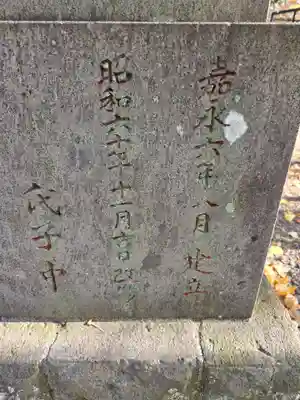 嘉永六年八月建立
昭和六十年十一月吉日改
氏子中